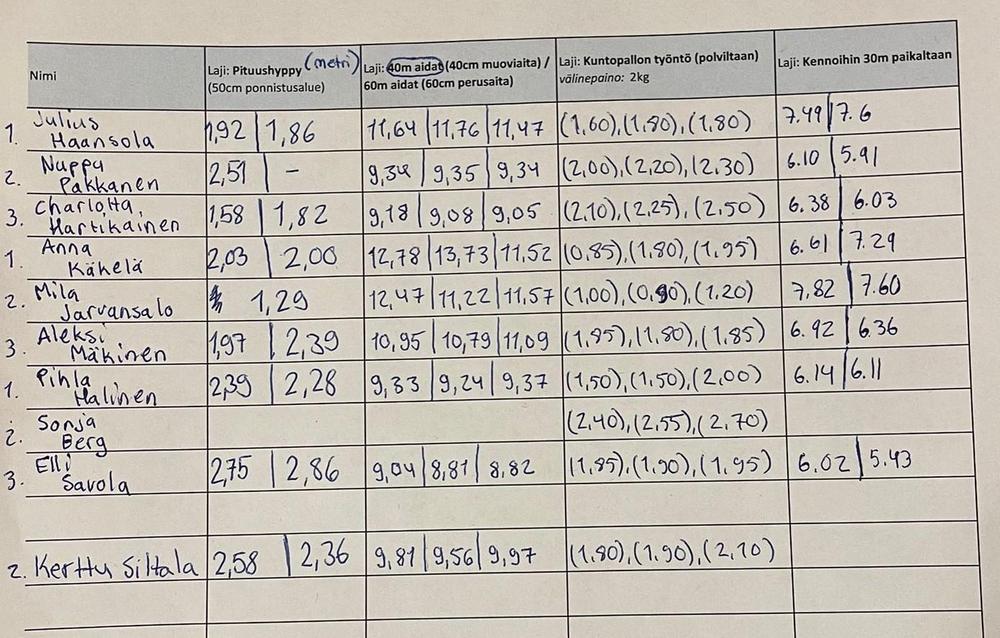 Nimi
Laji: Pituushyppy (metri)
(50cm ponnistusalue)
Laji: 40m aidat (40cm muoviaita) /
60m aidat (60cm perusaita)
Laji: Kuntopallon työntö (polviltaan)
välinepaino: 2kg
Laji: Kennoihin 30m paikaltaan
1. Julius Haansola 1,92 | 1,86 11,64 | 11,76 | 11,47 (1,60),(1,80),(1,80) 7.49 | 7.6
2. Nuppu Pakkanen 2,51 | - 9,34 | 9,35 | 9,34 (2,00),(2,20),(2,30) 6.10 | 5.91
3. Charlotta Hartikainen 1,58 | 1,82 9,18 | 9,08 | 9,05 (2,10),(2,25),(2,50) 6.38 | 6.03
1. Anna Kähelä 2,03 | 2,00 12,78 | 13,73 | 11,52 (0,85),(1,80),(1,95) 6.61 | 7.29
2. Mila Jarvansalo 1,29 12,47 | 11,22 | 11,57 (1,00),(0,90),(1,20) 7,82 | 7.60
3. Aleksi Mäkinen 1,97 | 2,39 10,95 | 10,79 | 11,09 (1,85),(1,80),(1,85) 6.92 | 6.36
1. Pihla Malinen 2,39 | 2,28 9,33 | 9,24 | 9,37 (1,50),(1,50),(2,00) 6.14 | 6.11
2. Sonja Berg (2,40),(2,55),(2,70)
3. Elli Savola 2,75 | 2,86 9,04 | 8,81 | 8,82 (1,85),(1,90),(1,95) 6.02 | 5.43
2. Kerttu Siltala 2,58 | 2,36 9,81 | 9,56 | 9,97 (1,80),(1,90),(2,10)